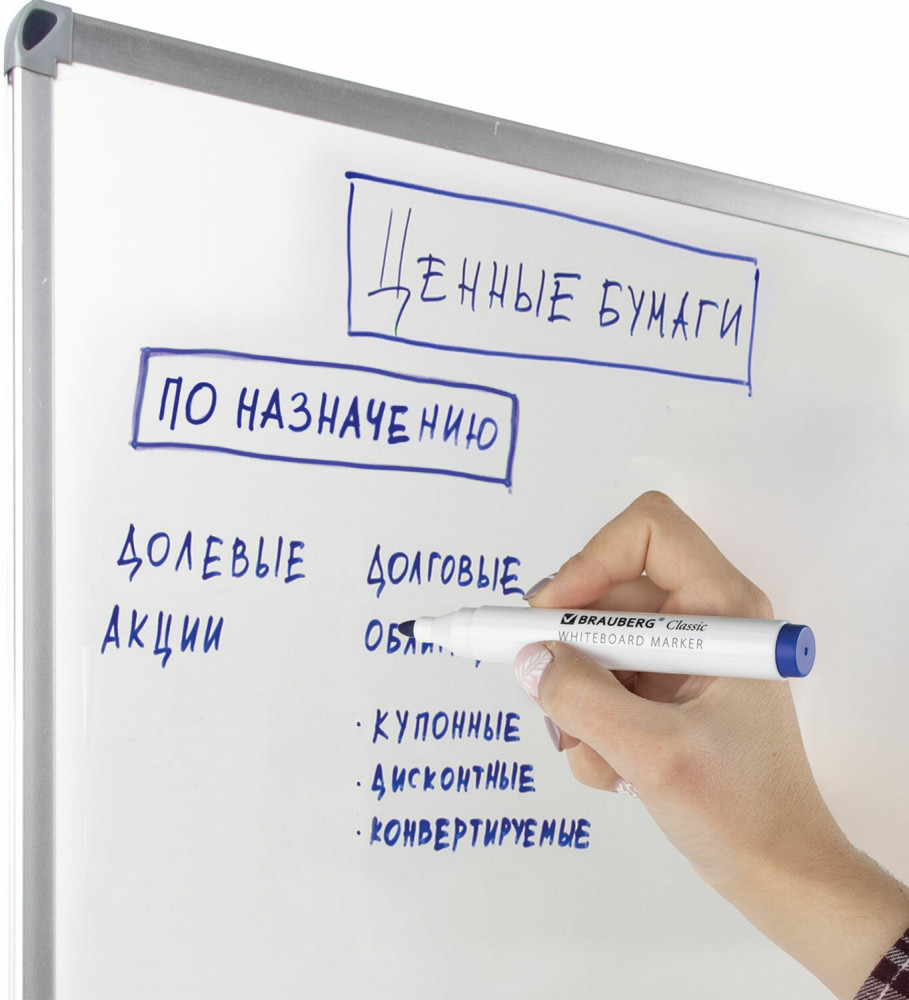 ЦЕННЫЕ БУМАГИ
ПО НАЗНАЧЕНИЮ
ДОЛЕВЫЕ ДОЛГОВЫЕ
АКЦИИ
BRAUBERG® Classic
WHITEBOARD MARKER
· КУПОННЫЕ
· ДИСКОНТНЫЕ
· КОНВЕРТИРУЕМЫЕ